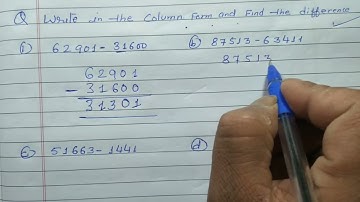 Q Write in the Column Form and Find the difference
(i) 62901 - 31600 (b) 87513 - 63411
62901 87513
- 31600
31301
(c) 51663 - 1441 (d)